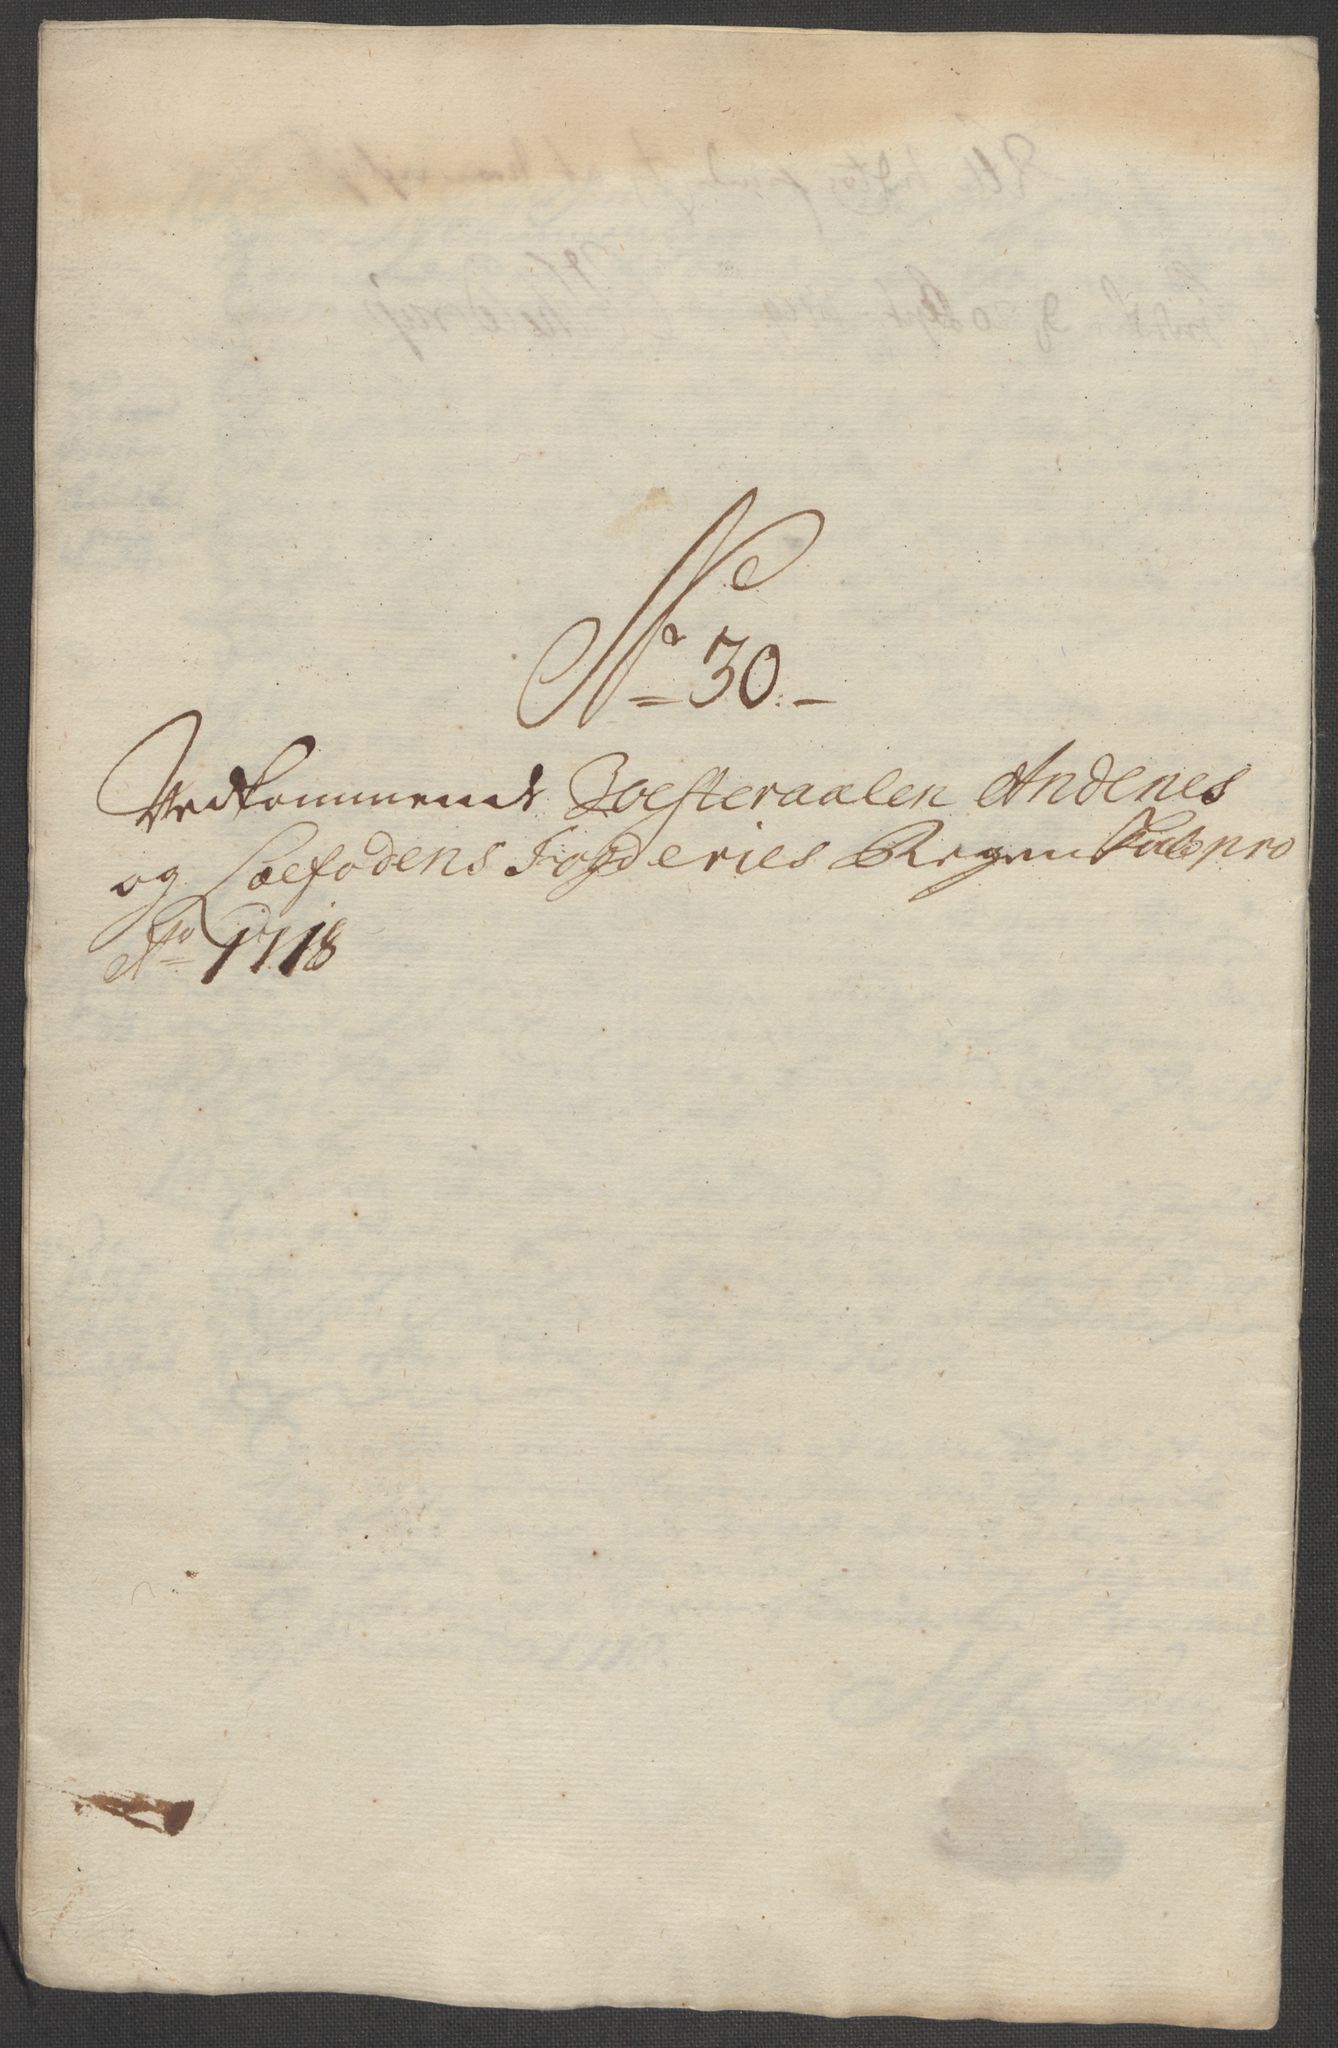 No 30.
Vedkommende Woesteraalen Andenes
og Loefodens Fogderies Regenskab pro
Ao 1718